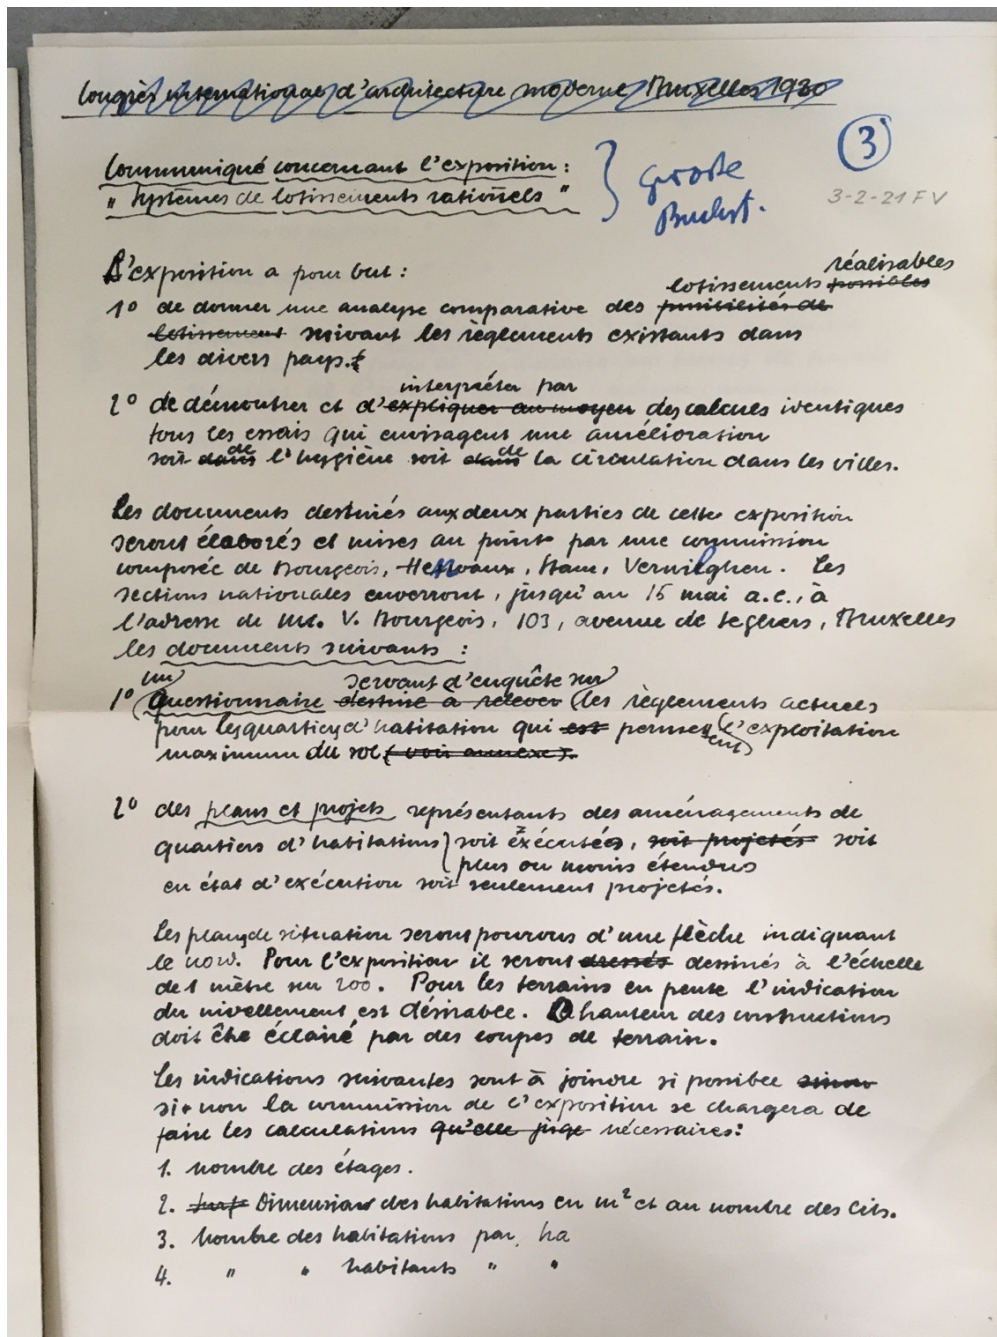 Congrès international d'architecture moderne Bruxelles 1930
3
Communiqué concernant l'exposition :
" Systèmes de lotissements rationels "
Grosse
Buchst.
3-2-21 FV
L'exposition a pour but :
réalisables
lotissements possibles
1° de donner une analyse comparative des possibilités de
lotissement suivant les règlements existants dans
les divers pays.
interpréter par
2° de démontrer et d'expliquer au moyen des calculs identiques
tous les essais qui envisagent une amélioration
de de
soit dans l'hygiène soit dans la circulation dans les villes.
Les documents destinés aux deux parties de cette exposition
seront élaborés et mises au point par une commission
composée de Bourgeois, Hervaux, Ham, Verwilghen. Les
sections nationales enverront, jusqu'au 15 mai a.c., à
l'adresse de Mr. V. Bourgeois, 103, avenue de Seghers, Bruxelles
les documents suivants :
un servant d'enquête sur
1° questionnaire destiné à relever les règlements actuels
pour les quartiers d'habitation qui est permettent l'exploitation
maximum du sol (voir annexe).
2° des plans et projets représentants des aménagements de
quartiers d'habitations soit exécutées, soit projetés soit
plus ou moins étendus
en état d'exécution soit seulement projetés.
Les plans de situation seront pourvus d'une flèche indiquant
le nord. Pour l'exposition il seront dressés dessinés à l'échelle
de 1 mètre sur 200. Pour les terrains en pente l'indication
du nivellement est désirable. La hauteur des constructions
doit être éclairé par des coupes de terrain.
Les indications suivantes sont à joindre si possible sinon
si non la commission de l'exposition se chargera de
faire les calculations qu'elle juge nécessaires :
1. nombre des étages.
2. Dimension des habitations en m² et au nombre des lits.
3. Nombre des habitations par ha
4. " " habitants " "